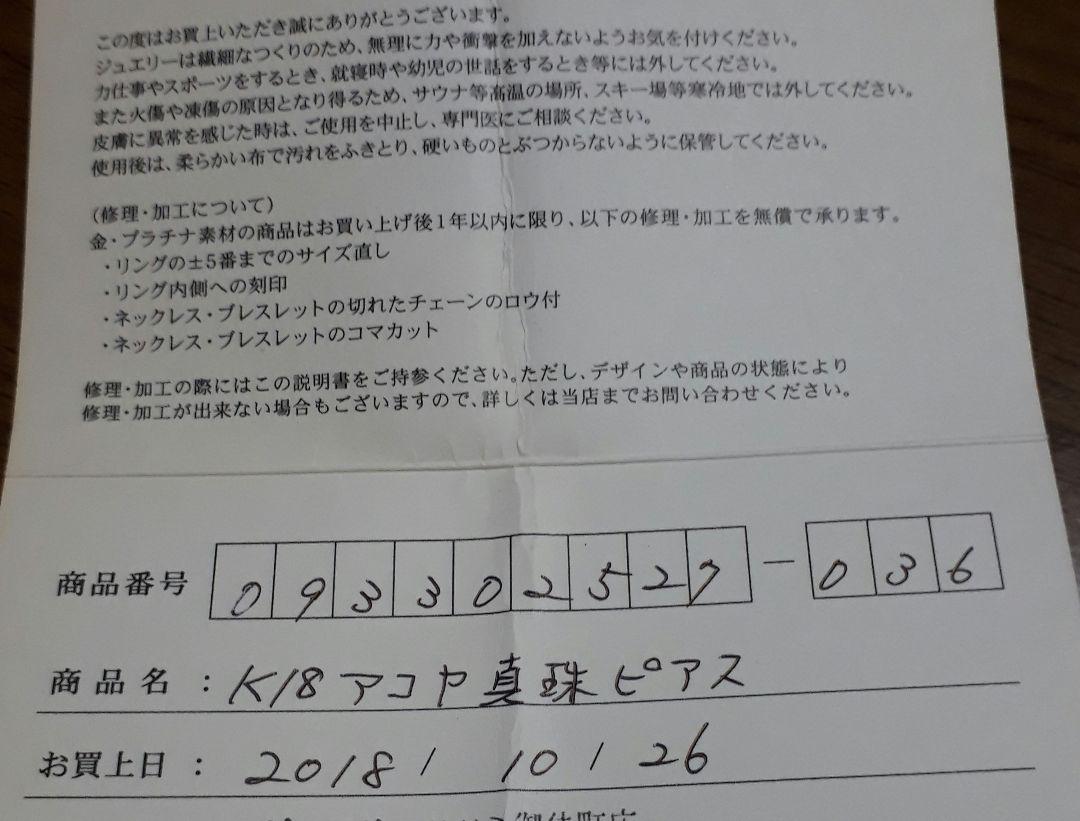 この度はお買上いただき誠にありがとうございます。
ジュエリーは繊細なつくりのため、無理に力や衝撃を加えないようお気を付けください。
力仕事やスポーツをするとき、就寝時や幼児の世話をするとき等には外してください。
また火傷や凍傷の原因となり得るため、サウナ等高温の場所、スキー場等寒冷地では外してください。
皮膚に異常を感じた時は、ご使用を中止し、専門医にご相談ください。
使用後は、柔らかい布で汚れをふきとり、硬いものとぶつからないように保管してください。
(修理・加工について)
金・プラチナ素材の商品はお買い上げ後1年以内に限り、以下の修理・加工を無償で承ります。
・リングの±5番までのサイズ直し
・リング内側への刻印
・ネックレス・ブレスレットの切れたチェーンのロウ付
・ネックレス・ブレスレットのコマカット
修理・加工の際にはこの説明書をご持参ください。ただし、デザインや商品の状態により
修理・加工が出来ない場合もございますので、詳しくは当店までお問い合わせください。
商品番号 093302527-036
商品名:K18アコヤ真珠ピアス
お買上日:2018/10/26
御徒町店